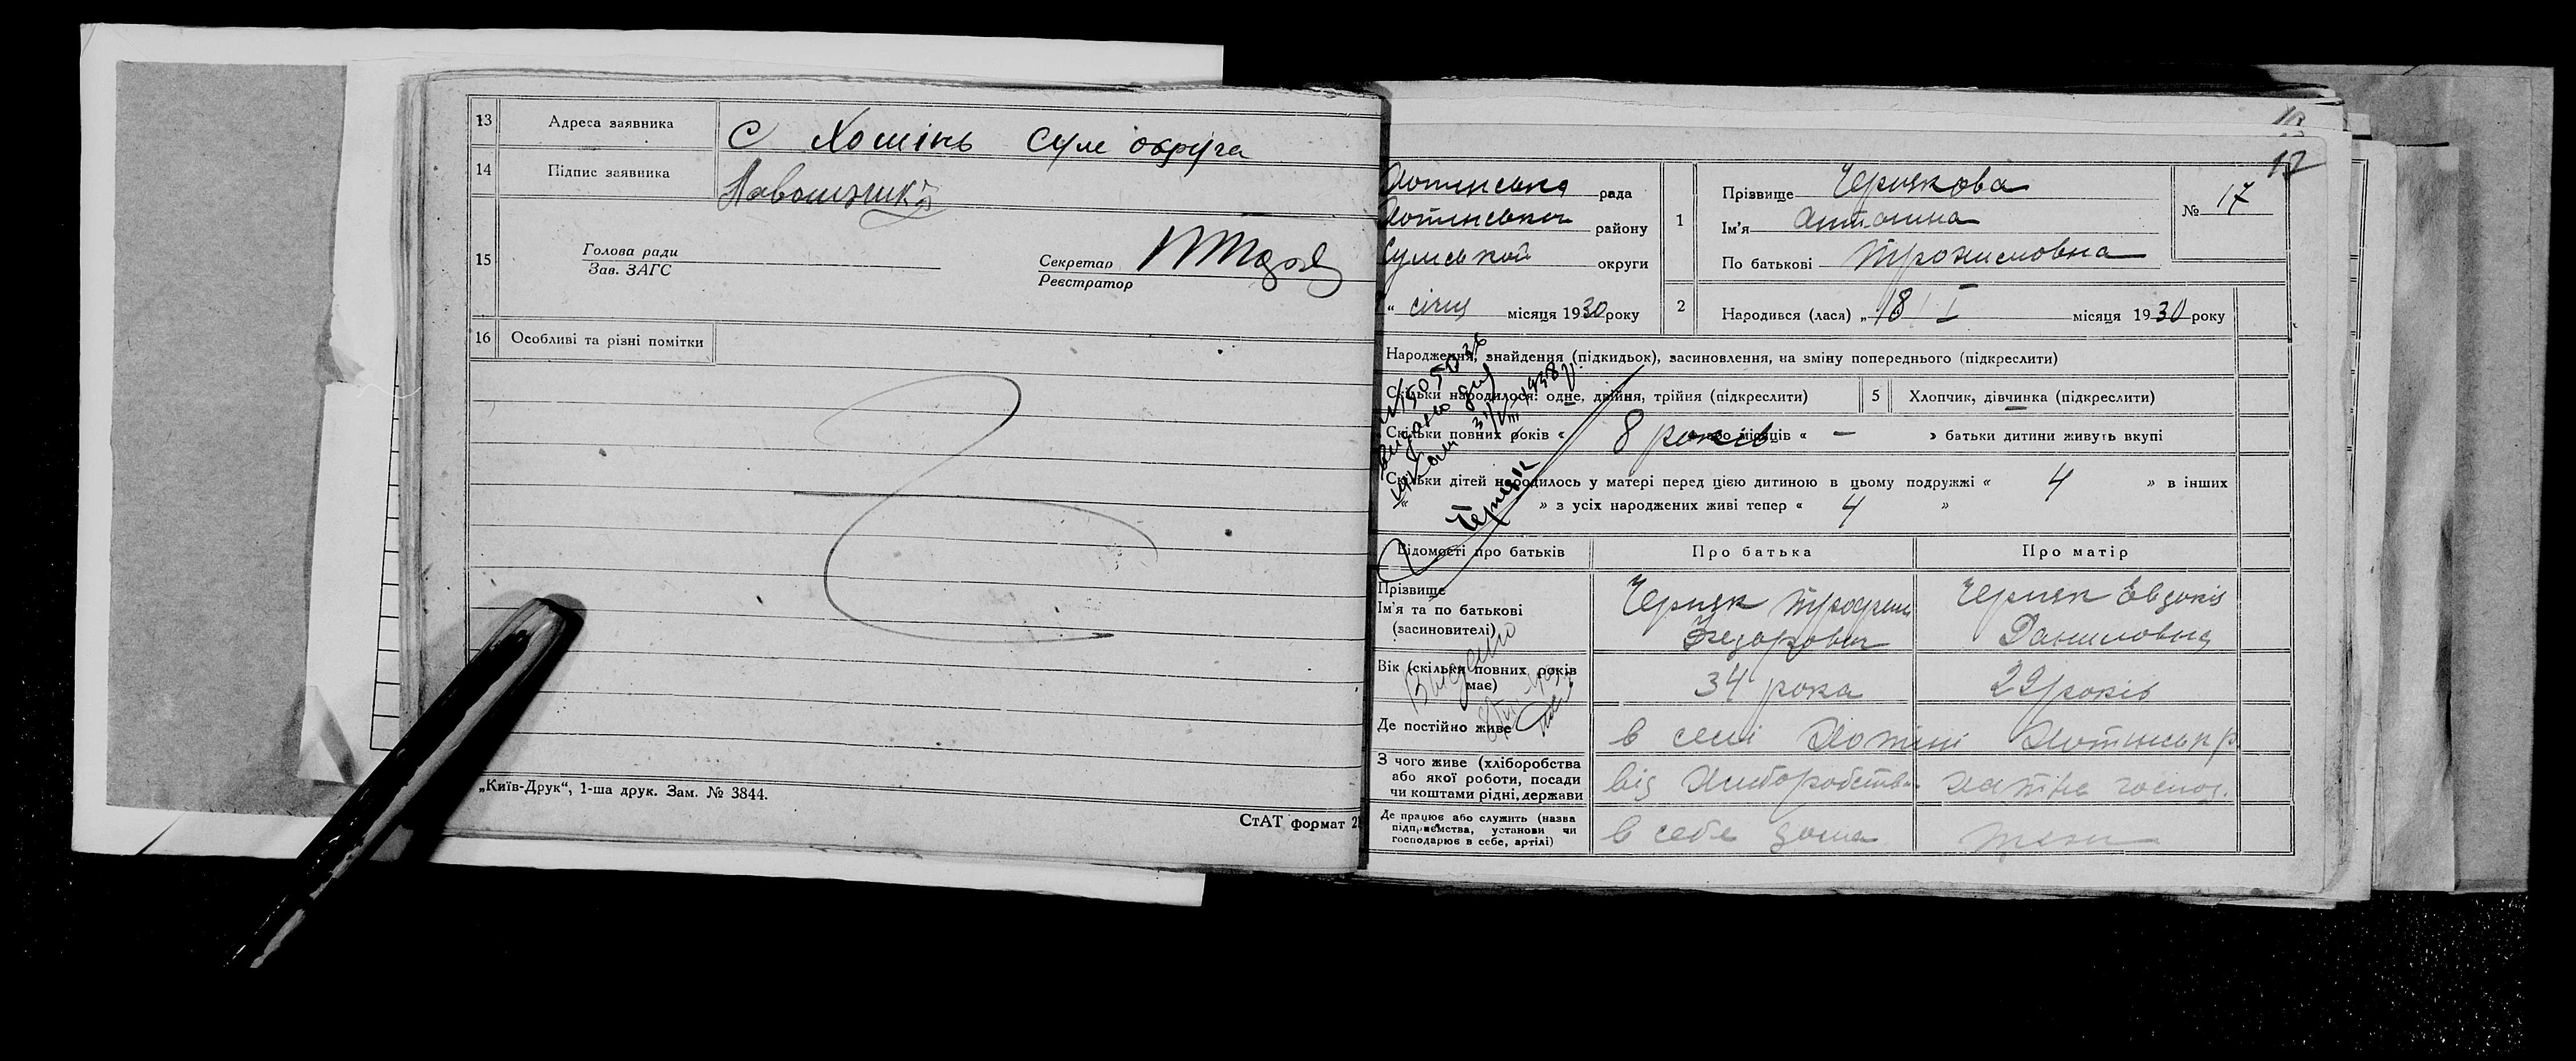 13 Адреса заявника С Хотінь Сум округа
14 Підпис заявника
15 Голова ради
Зав. ЗАГС
Секретар
Реєстратор
16 Особливі та різні помітки
„Київ-Друк“, 1-ша друк. Зам. № 3844.
СтАТ формат
17
Хотинська рада
Хотинського району
Сумської округи
“ січня місяця 1930 року
1 Прізвище Чернякова
Ім’я Антонина
По батькові Трохимовна
№ 17
2 Народився (лася) „ 18 I місяця 1930 року
Народження, знайдення (підкидьок), засиновлення, на зміну попереднього (підкреслити)
Скільки народилося: одне, двійня, трійня (підкреслити) 5 Хлопчик, дівчинка (підкреслити)
Скільки повних років « 8 років або місяців « — » батьки дитини живуть вкупі
Скільки дітей народилось у матері перед цією дитиною в цьому подружжі « 4 » в інших
« » з усіх народжених живі тепер « 4 »
Черняк
Відомості про батьків Про батька Про матір
Прізвище
Ім’я та по батькові
(засиновителі)
Черняк Трофим
Федорович
Черняк Евдокія
Даниловна
Видано
Вік (скільки повних років
має)
34 рока 29 років
Де постійно живе в селі Хотіні Хотинськ р
З чого живе (хліборобства
або якої роботи, посади
чи коштами рідні, держави
від Хліборобства хатнє господ.
Де працює або служить (назва
підприємства, установи чи
господарює в себе, артілі)
в себе дома